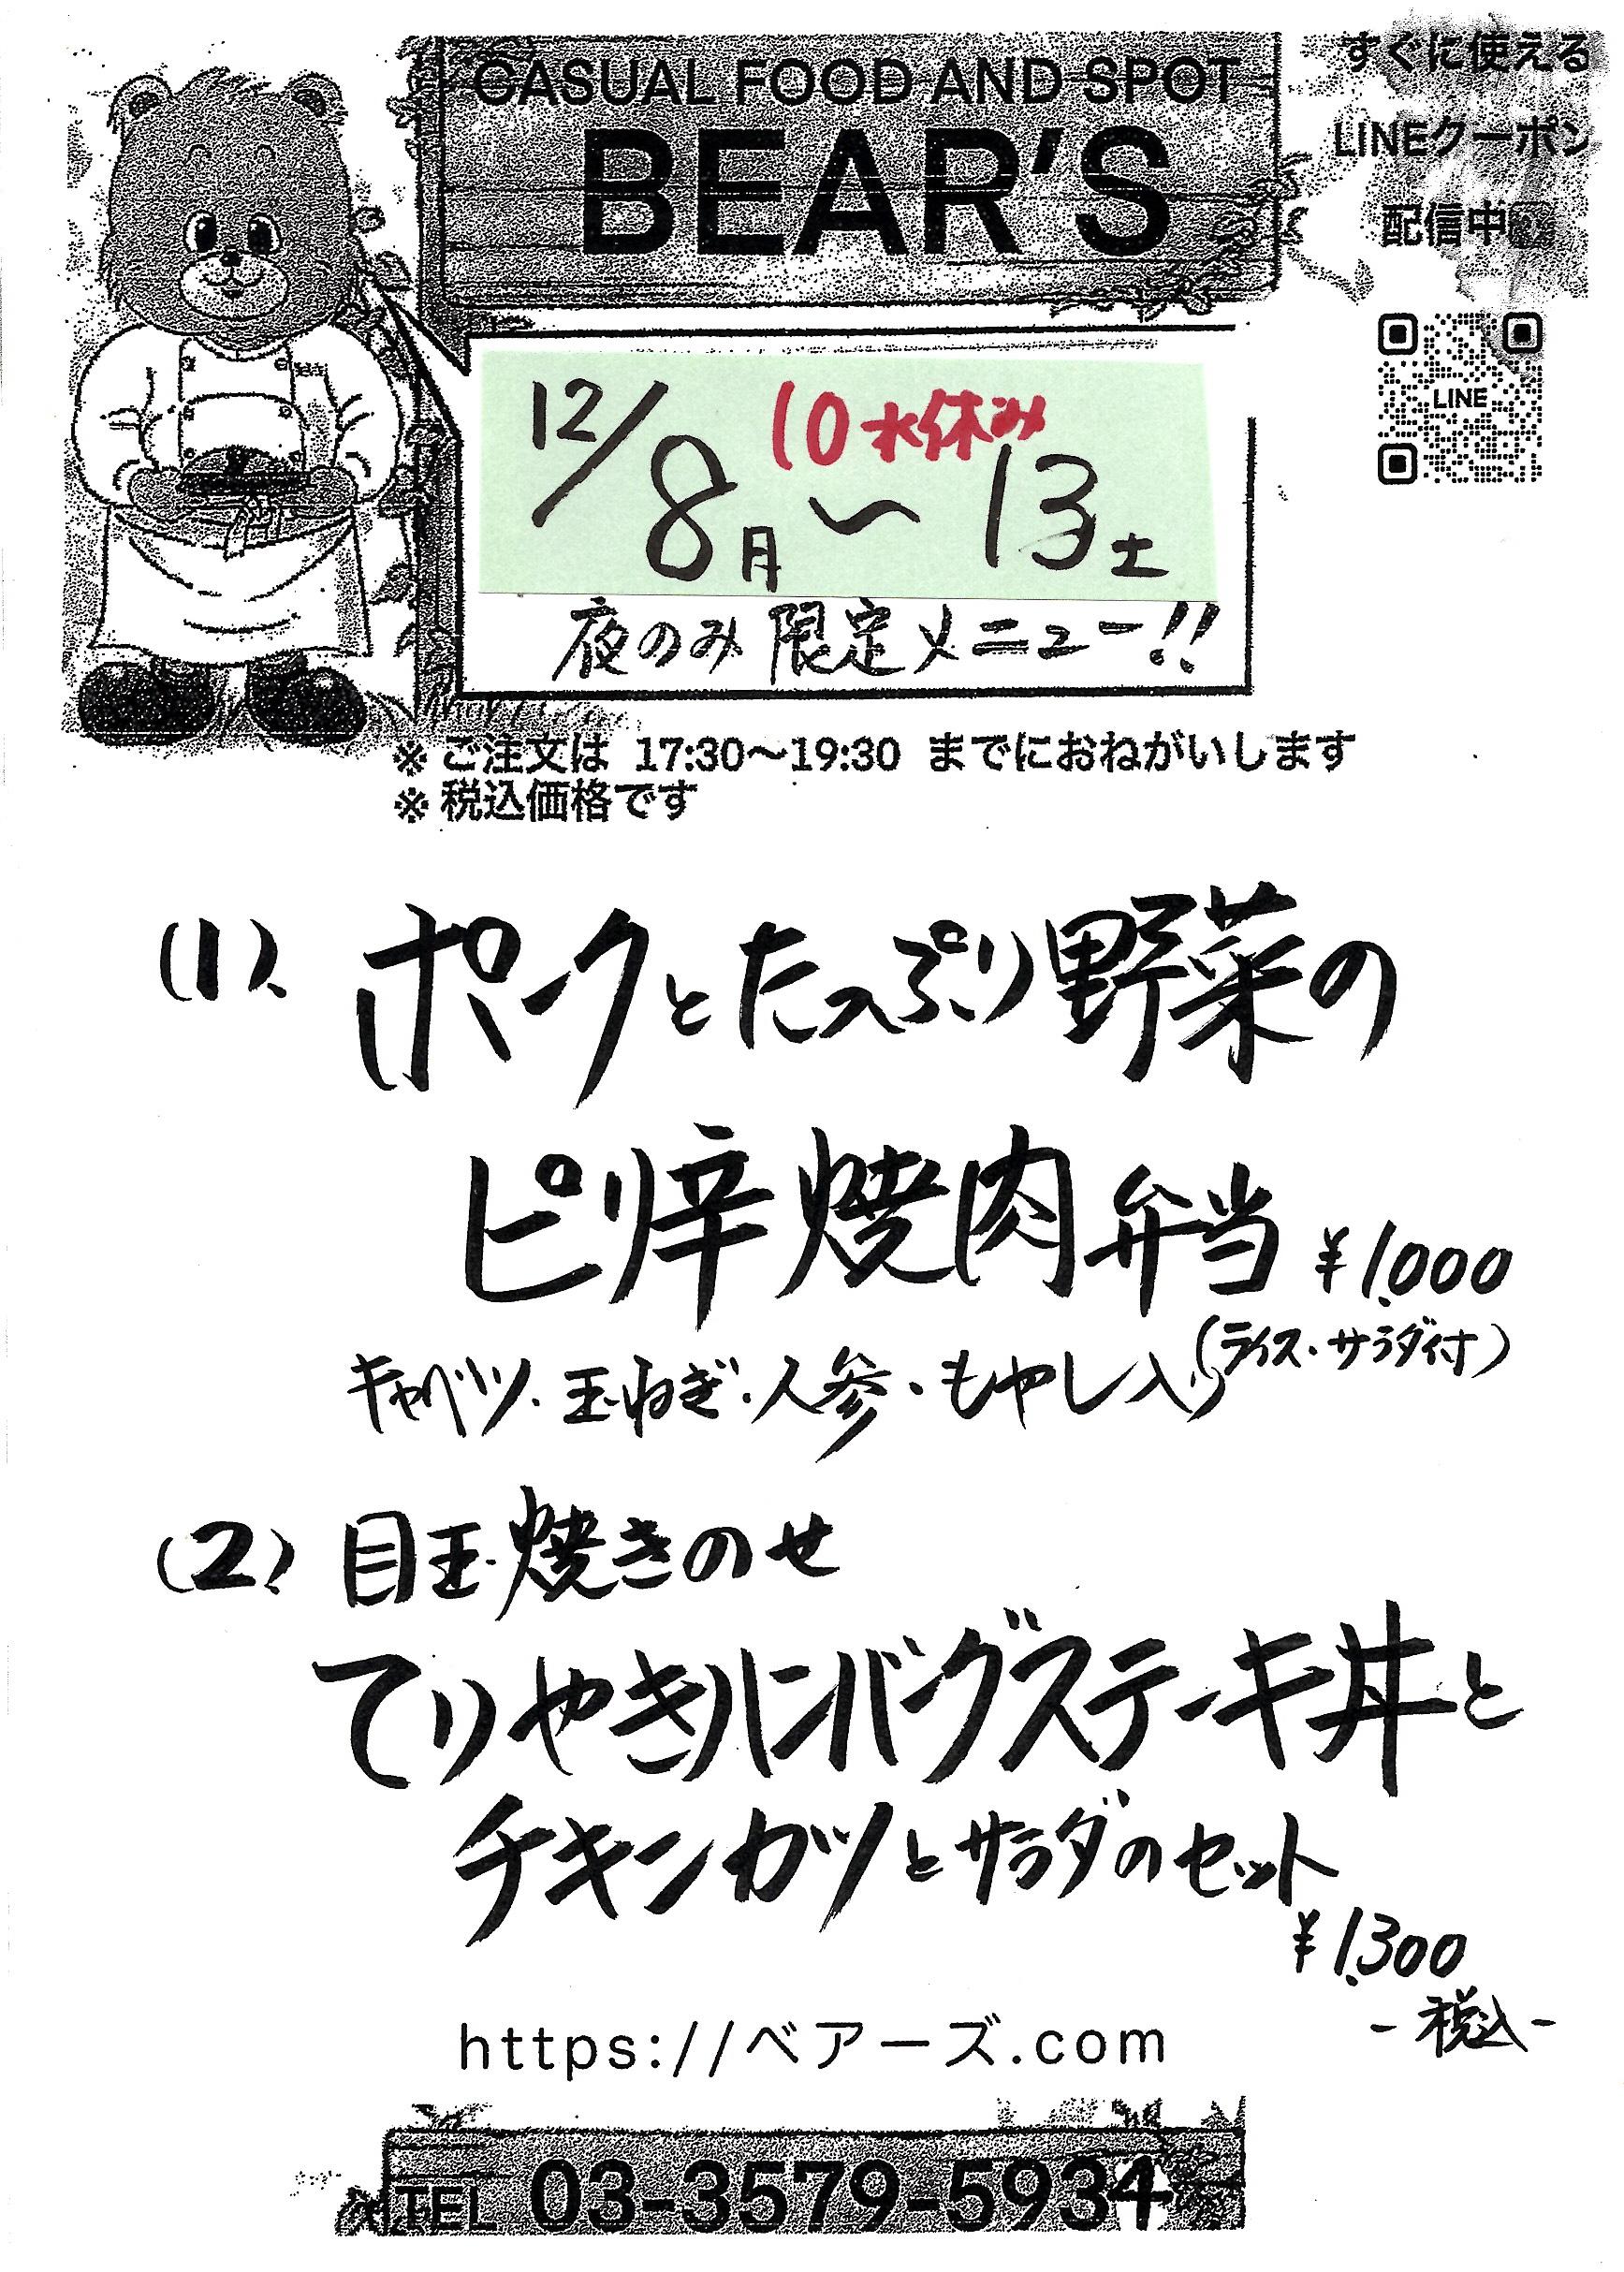 CASUAL FOOD AND SPOT
BEAR'S
すぐに使える
LINEクーポン
配信中
LINE
10水休み
12/8月〜13土
夜のみ限定メニュー!!
※ ご注文は 17:30〜19:30 までにおねがいします
※ 税込価格です
(1)、ポークとたっぷり野菜の
ピリ辛焼肉弁当 ¥1,000
(ライス・サラダ付)
キャベツ・玉ねぎ・人参・もやし入り
(2)、目玉焼きのせ
てりやきハンバーグステーキ丼と
チキンカツとサラダのセット
¥1,300
-税込-
https://ベアーズ.com
TEL 03-3579-5934